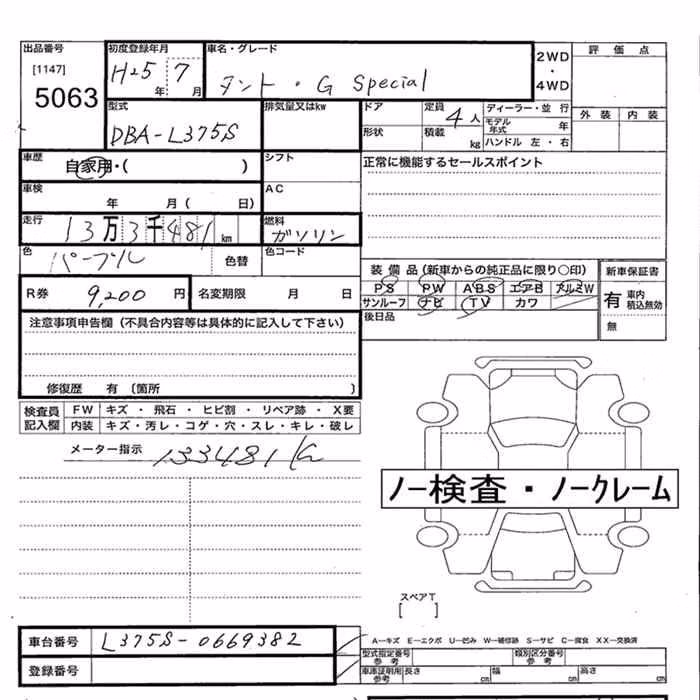 出品番号 初度登録年月 車名・グレード 2WD 評価点
[1147] H25 年 7 月 タント・G Special ・
5063 4WD
型式 排気量又はkw ドア 定員 4人 ディーラー・並行 外装 内装
DBA-L375S 形状 積載 kg モデル年式 年
ハンドル 左・右
車歴 自家用・( ) シフト 正常に機能するセールスポイント
車検 年 月( 日) AC
走行 13万3千481km 燃料 ガソリン
色 パープル 色替 色コード
装備品(新車からの純正品に限り○印) 新車保証書
PS PW ABS エアB アルミW 有 車内積込無効
サンルーフ ナビ TV カワ
R券 9,200円 名変期限 月 日 無
後日品
注意事項申告欄(不具合内容等は具体的に記入して下さい)
修復歴 有 〔箇所 〕
検査員記入欄 FW キズ・飛石・ヒビ割・リペア跡・X要
内装 キズ・汚レ・コゲ・穴・スレ・キレ・破レ
メーター指示 133481K
ノー検査・ノークレーム
スペアT
[ ]
車台番号 L375S-0669382
A―キズ E―エクボ U―凹み W―補修跡 S―サビ C―腐食 XX―交換済
型式指定番号 参考 類別区分番号 参考
登録番号 車庫証明用 参考 長さ cm 幅 cm 高さ cm